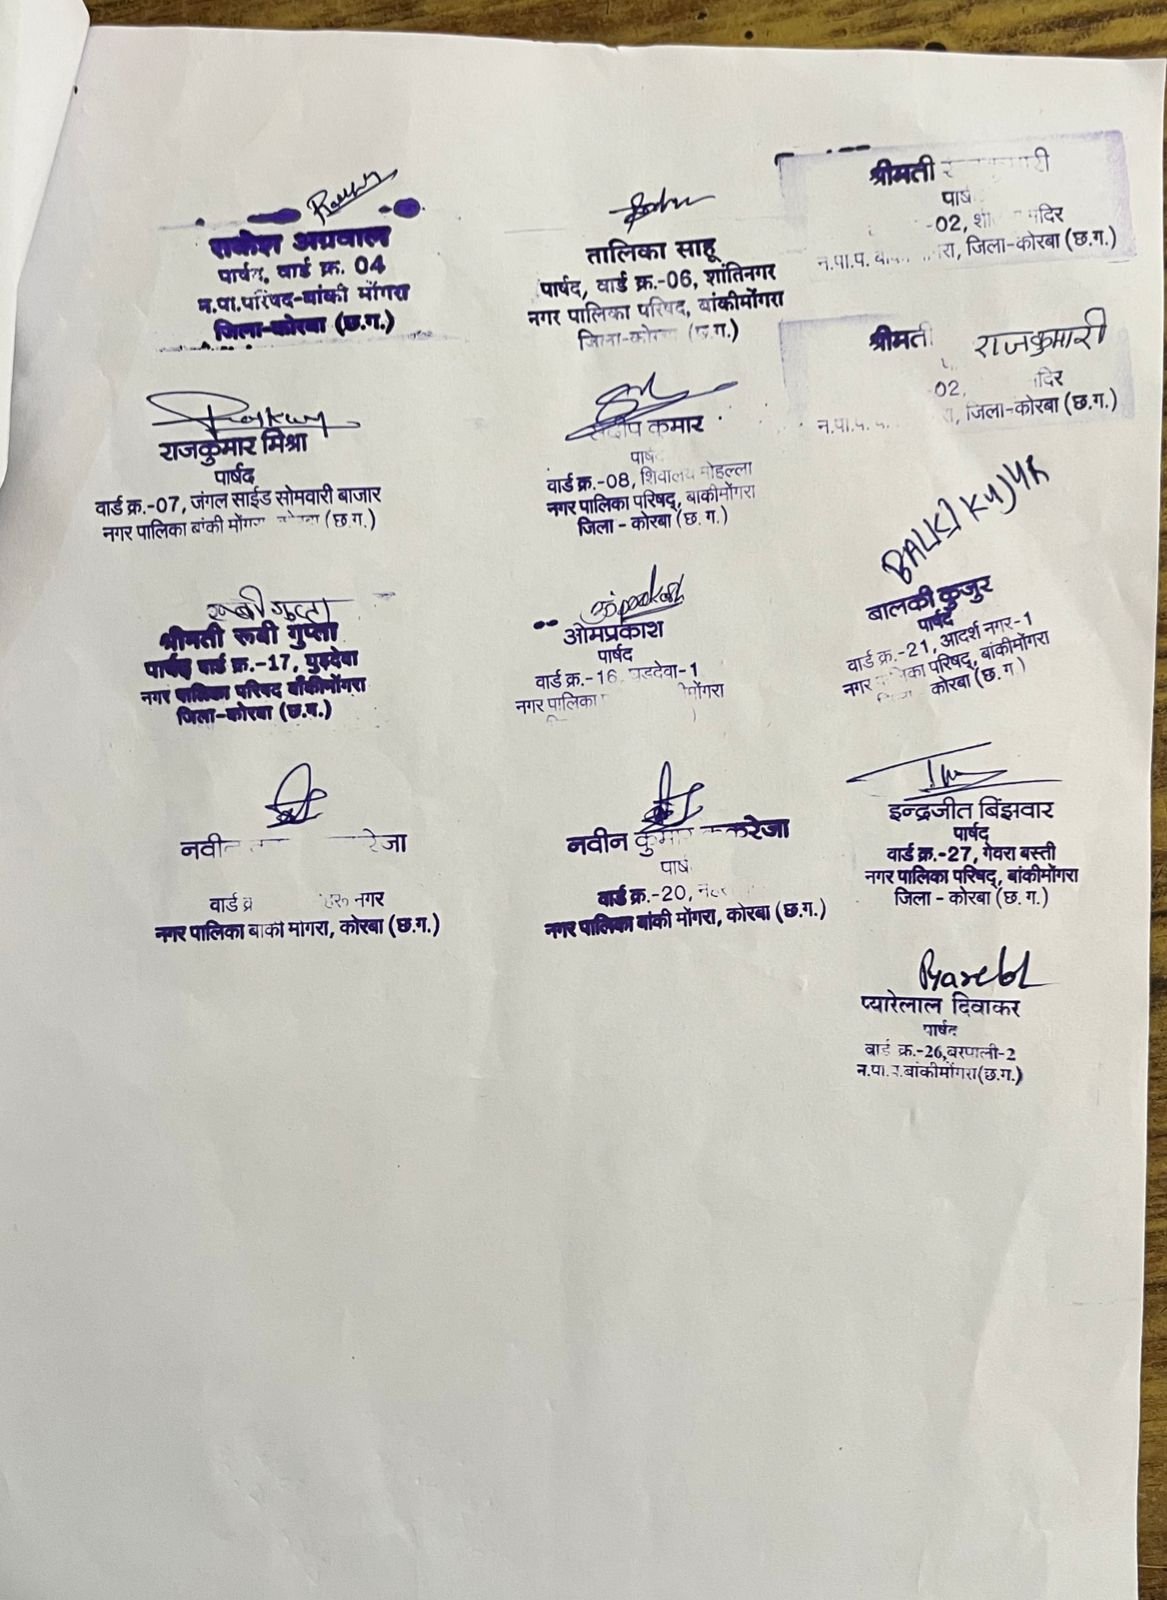 राकेश अग्रवाल
पार्षद, वार्ड क्र. 04
न.पा.परिषद-बांकी मोंगरा
जिला-कोरबा (छ.ग.)
तालिका साहू
पार्षद, वार्ड क्र.-06, शांतिनगर
नगर पालिका परिषद, बांकीमोंगरा
जिला-कोरबा (छ.ग.)
श्रीमती
-02,
न.पा.प. जिला-कोरबा (छ.ग.)
श्रीमती राजकुमारी
02,
जिला-कोरबा (छ.ग.)
राजकुमार मिश्रा
पार्षद
वार्ड क्र.-07, जंगल साईड सोमवारी बाजार
नगर पालिका बांकी मोंगरा कोरबा (छ.ग.)
कुमार
वार्ड क्र.-08, शिवालय मोहल्ला
नगर पालिका परिषद्, बाकीमोंगरा
जिला - कोरबा (छ.ग.)
BALKI KUJUR
बालकी कुजुर
पार्षद
वार्ड क्र.-21, आदर्श नगर-1
नगर पालिका परिषद, बांकीमोंगरा
कोरबा (छ.ग.)
रूबी गुप्ता
श्रीमती रूबी गुप्ता
पार्षद वार्ड क्र.-17, घुड़देवा
नगर पालिका परिषद बाँकीमोंगरा
जिला-कोरबा (छ.ग.)
ओमप्रकाश
पार्षद
वार्ड क्र.-16,
नगर पालिका
नवीन
वार्ड नगर
नगर पालिका बाकी मोगरा, कोरबा (छ.ग.)
नवीन कुमार
वार्ड क्र.-20,
नगर पालिका बांकी मोंगरा, कोरबा (छ.ग.)
इन्द्रजीत बिंझवार
पार्षद
वार्ड क्र.-27, गेवरा बस्ती
नगर पालिका परिषद्, बांकीमोंगरा
जिला - कोरबा (छ.ग.)
प्यारेलाल दिवाकर
पार्षद
वार्ड क्र.-26,बरपाली-2
बांकीमोंगरा(छ.ग.)